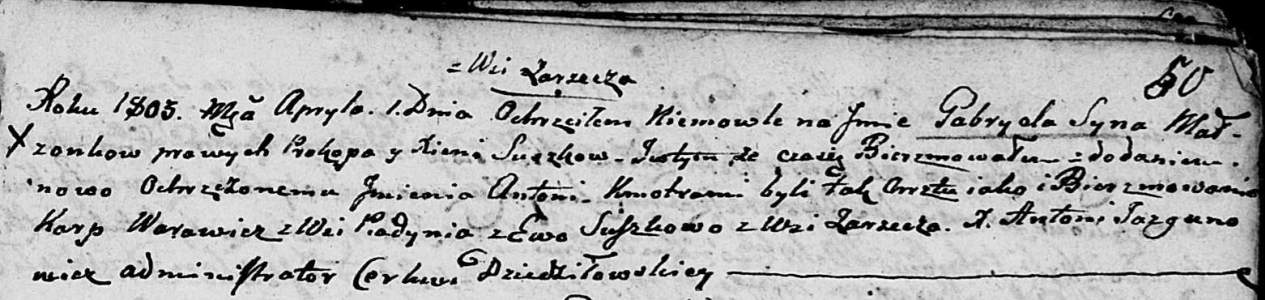 z Wsi Zarzecza
50
Roku 1805. Mca Apryla. 1. Dnia Ochrzciłem Niemowle na Jmie Gabryela Syna Mał-
X zonkow prawych Prokopa y Xieni Suszkow. tym ze czasie Bierzmowałem z dodaniem
nowo Ochrzczonemu Jmienia Antoni. Kmotrami byli tak Chrztu iako i Bierzmowania
Karp Warawicz z Wsi z Ewo Suszkowo z Wsi Zarzecza. X. Antoni Jazguno
wicz administrator Cerkwi Dziedziłowskiey